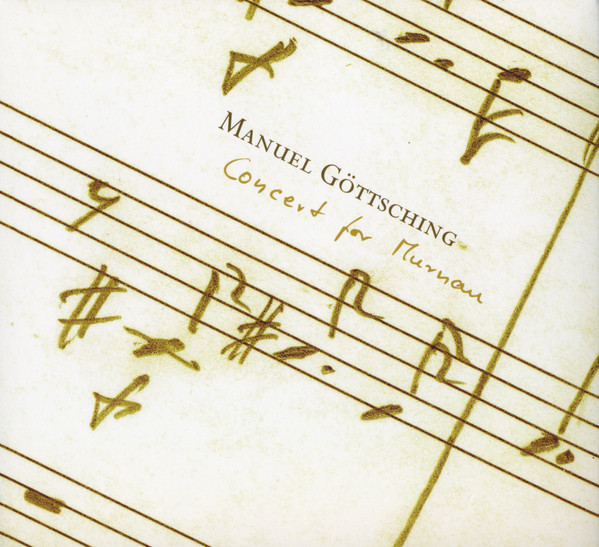 MANUEL GÖTTSCHING
Concert for Murnau